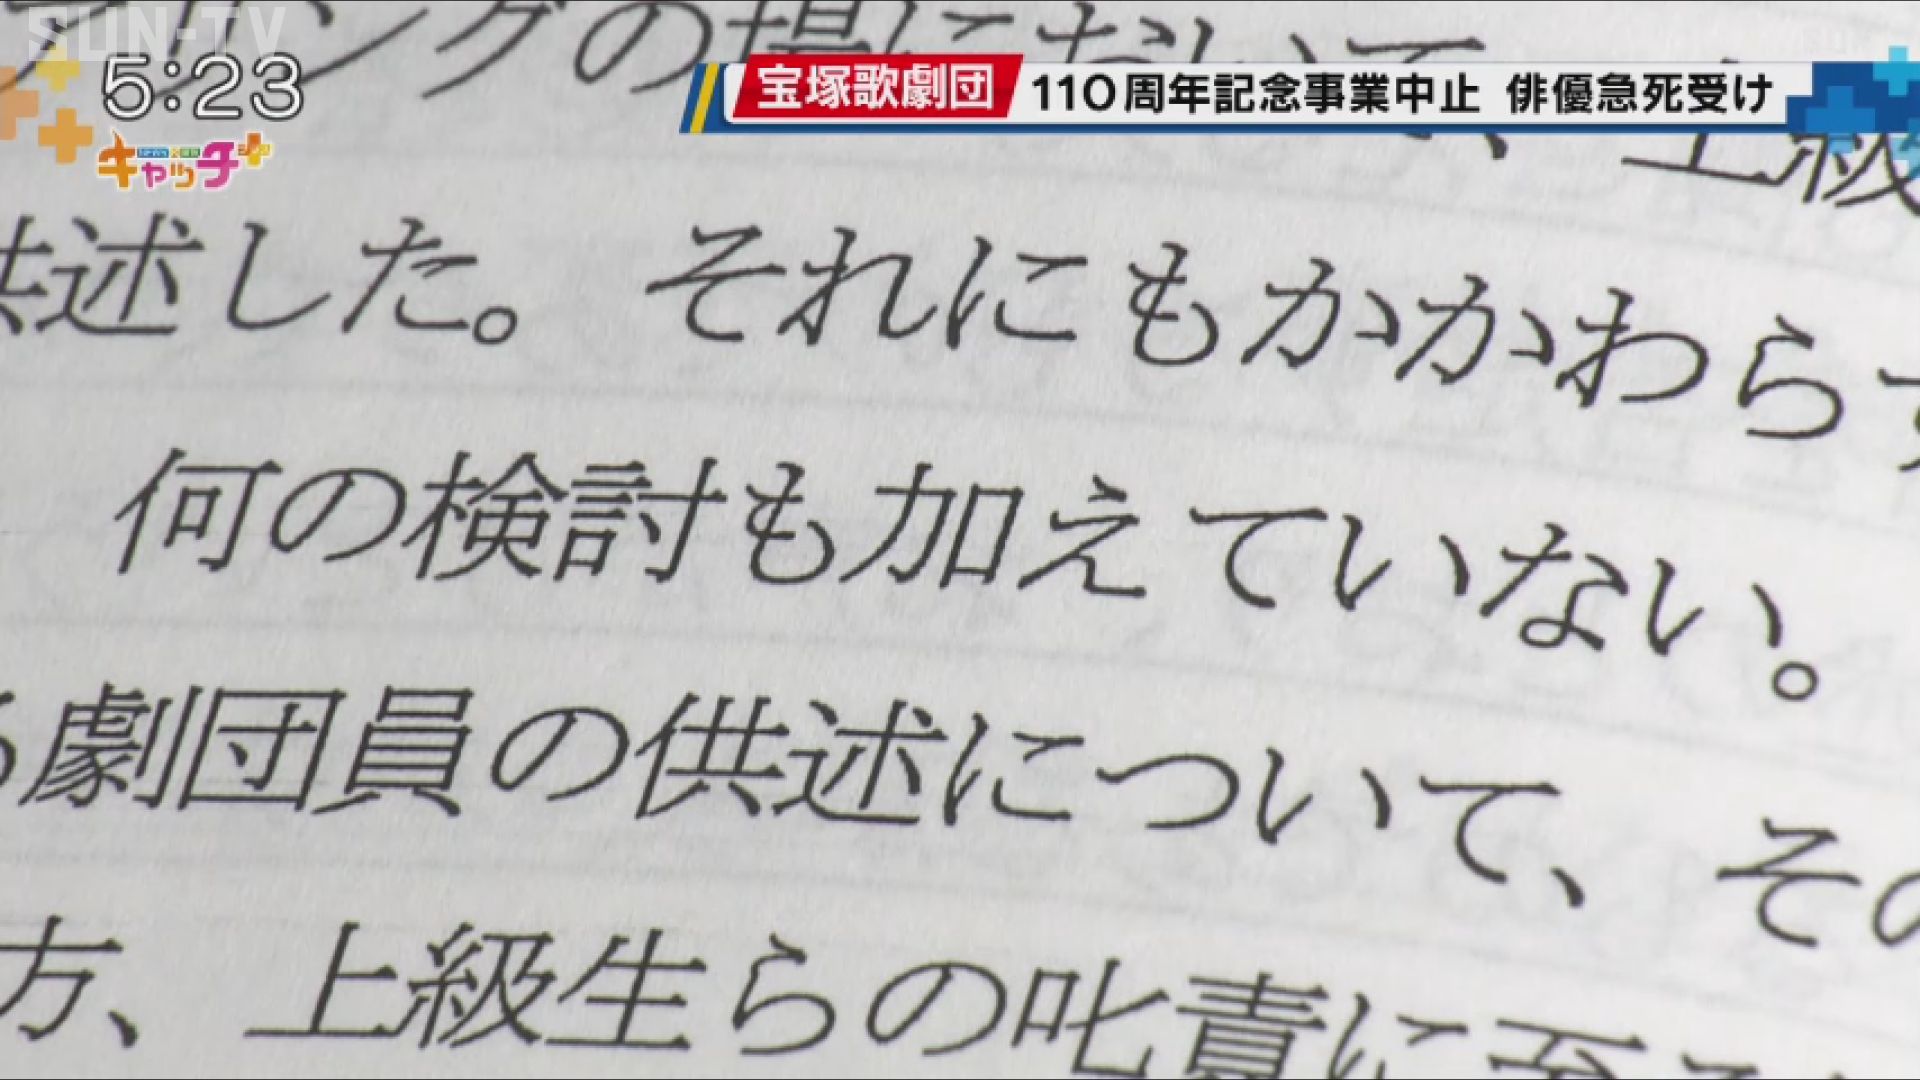 SUN-TV
5:23
キャッチ+
宝塚歌劇団 110周年記念事業中止 俳優急死受け
ングの場において、上級
供述した。それにもかかわらず
何の検討も加えていない。
る劇団員の供述について、その
方、上級生らの叱責に至る